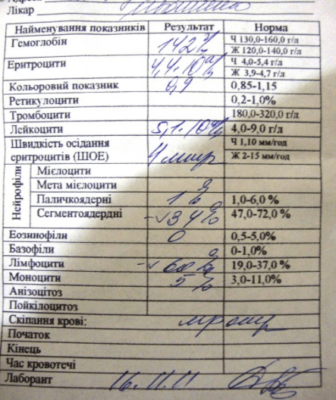 Лікар
Найменування показників Результат Норма
Гемоглобін 142 Ч 130,0-160,0 г/л
Ж 120,0-140,0 г/л
Еритроцити 4,4·10 Ч 4,0-5,4 г/л
Ж 3,9-4,7 г/л
Кольоровий показник 0,9 0,85-1,15
Ретикулоцити 0,2-1,0%
Тромбоцити 180,0-320,0 г/л
Лейкоцити 5,1·10 4,0-9,0 г/л
Швидкість осідання Ч 1,10 мм/год
еритроцитів (ШОЕ) 4 Ж 2-15 мм/год
Нейрофіли
Мієлоцити
Мета мієлоцити
Паличкоядерні 1% 1,0-6,0 %
Сегментоядерні 34% 47,0-72,0 %
Еозинофіли 0 0,5-5,0%
Базофіли 0-1,0%
Лімфоцити 19,0-37,0 %
Моноцити 5% 3,0-11,0%
Анізоцітоз
Пойкілоцитоз
Скіпання крові:
Початок
Кінець
Час кровотечі
Лаборант 16.11.11